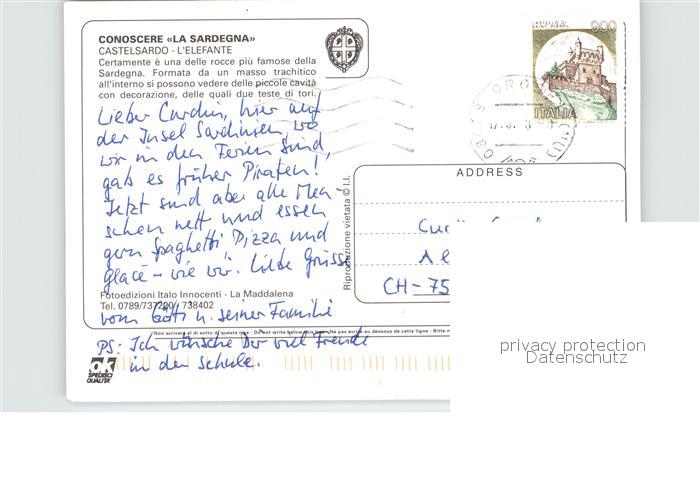 CONOSCERE «LA SARDEGNA»
CASTELSARDO - L'ELEFANTE
Certamente è una delle rocce più famose della
Sardegna. Formata da un masso trachitico
all'interno si possono vedere delle picole cavità
con decorazione, delle quali due teste di tori.
Lieber Curdin, hier auf
der Insel Sardinien, wo
wir in den Ferien sind,
gab es früher Piraten!
Jetzt sind aber alle Men-
schen nett und essen
gern Spaghetti, Pizza und
glacé - wie wir. Liebe Grüsse
Fotoedizioni Italo Innocenti - La Maddalena
Tel. 0789/737200 / 738402
vom Götti u. seiner Familie
Non scrivere al di sotto di questa riga - Do not write below this line - Ne pas écrire au dessous de cette ligne - Bitte
PS: Ich wünsche Dir viel Freude
in der Schule.
OK
SPEDISCI
QUALITA'
Riproduzione vietata © I.I.
CASTELLO DI
900
ITALIA
ADDRESS
CH-75
privacy protection
Datenschutz